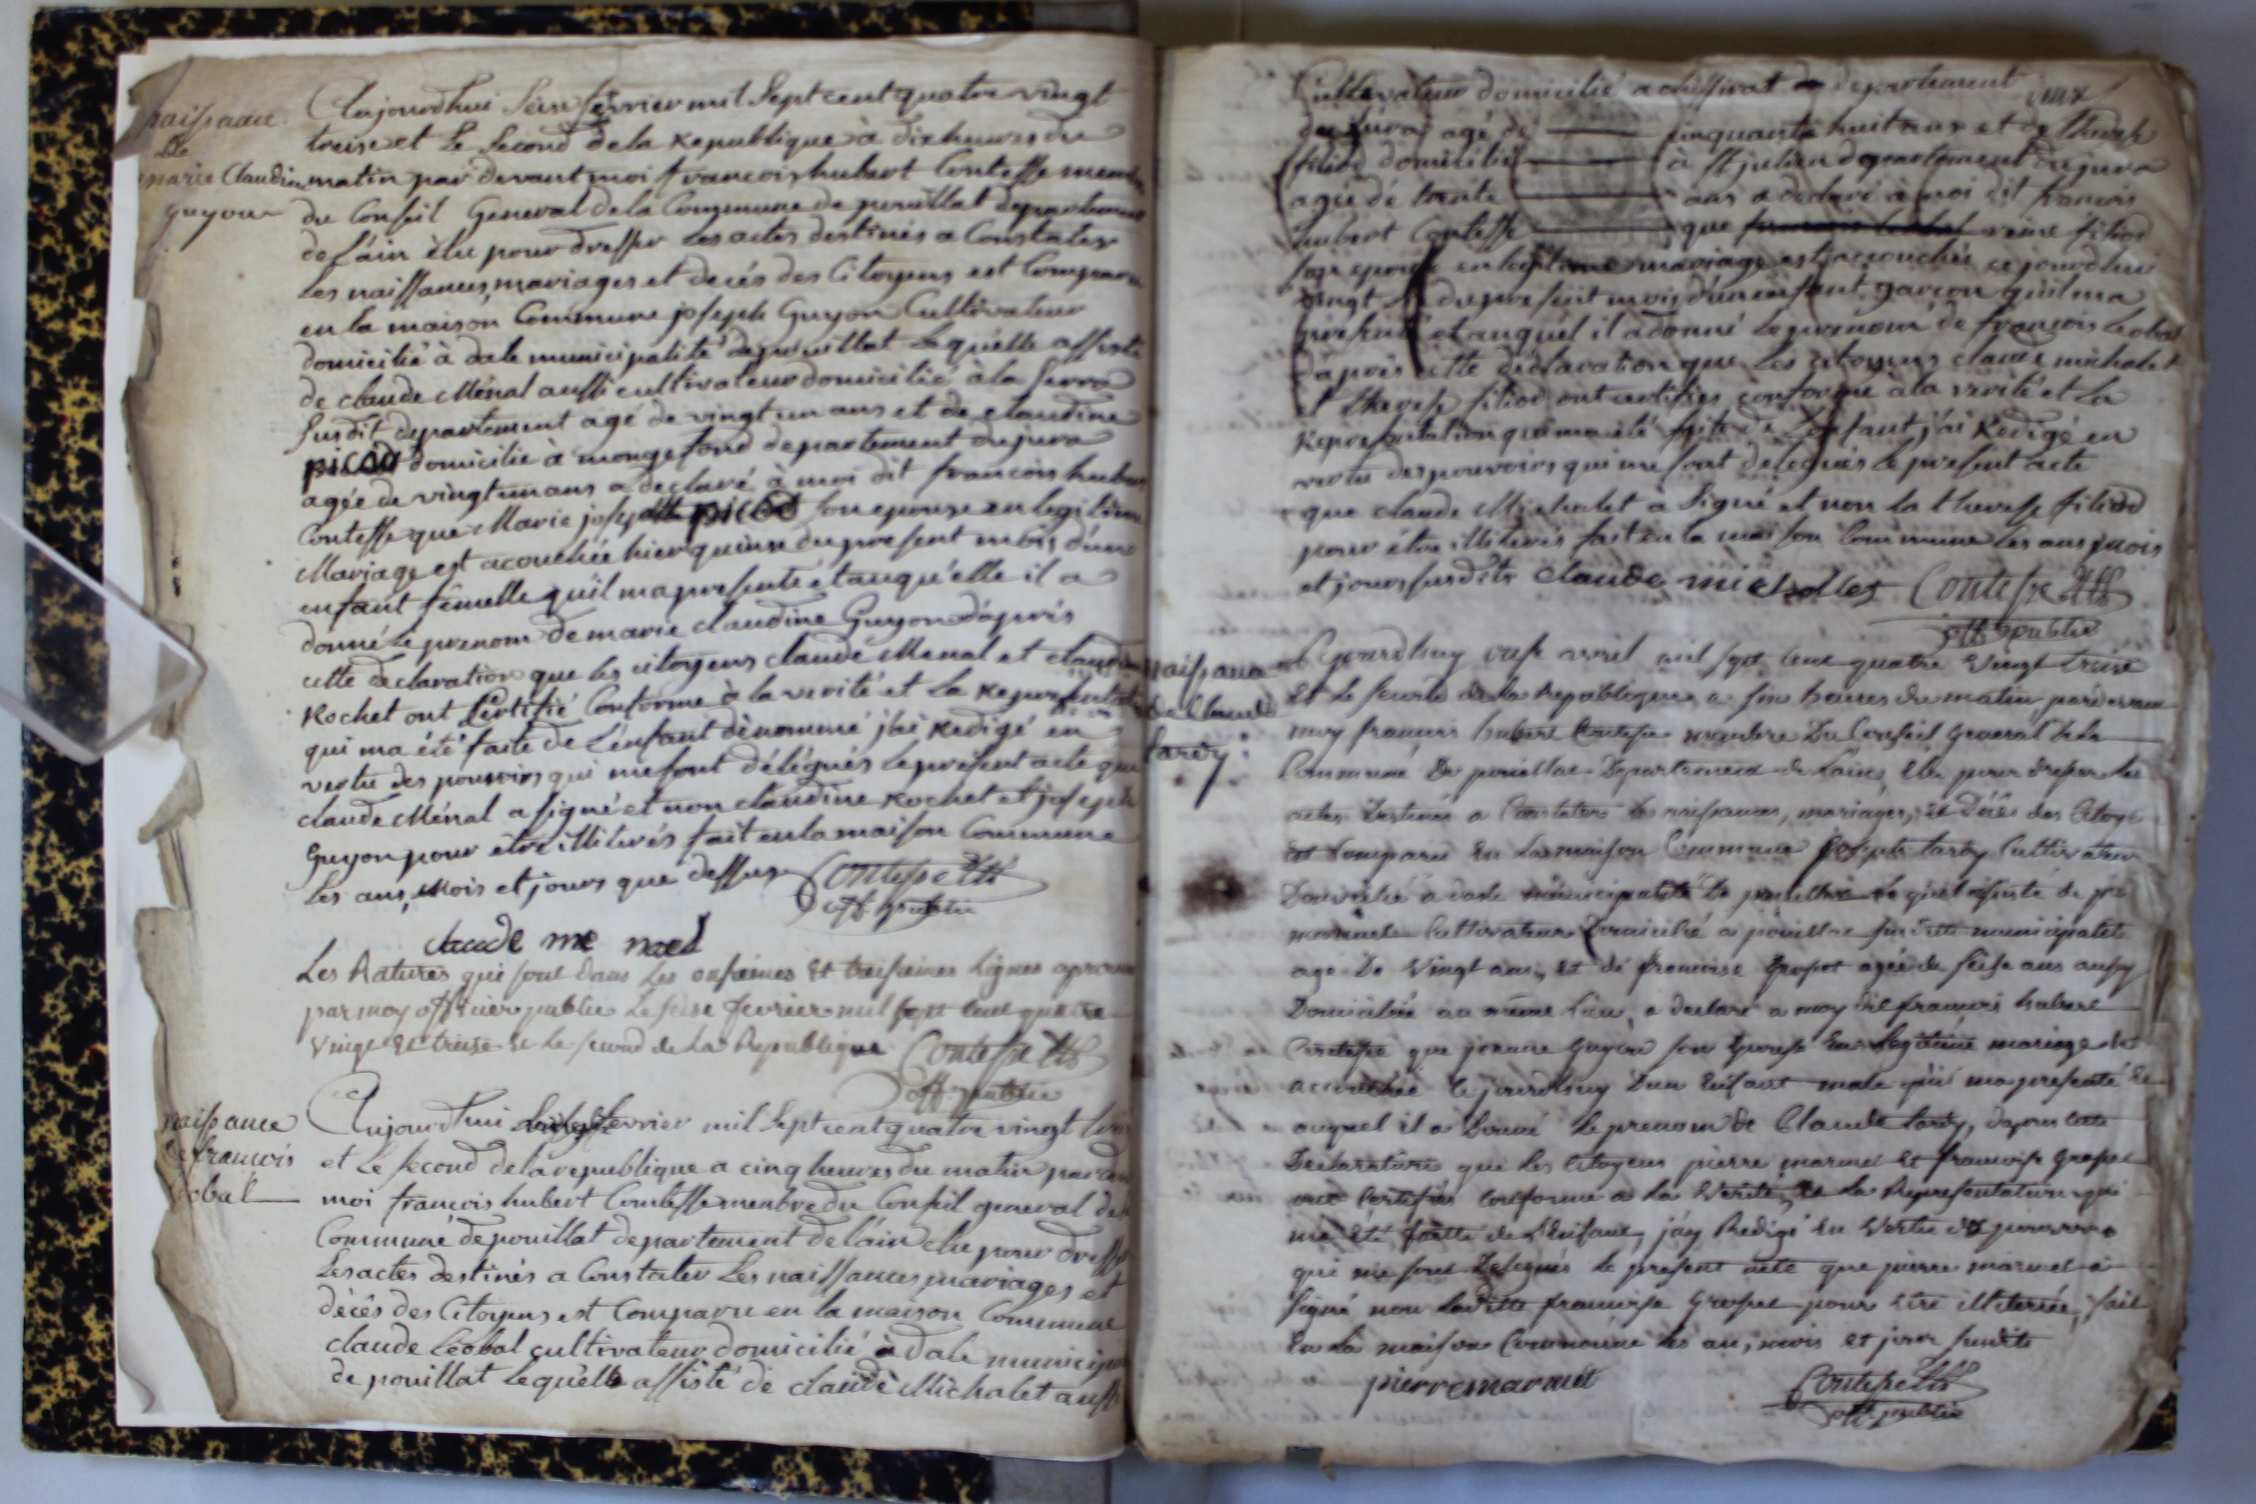 naissance
de
marie Claudine
guyon
Aujourdhui seise fevrier mil Sept cent quatre vingt
treise et le Second de la Republique à dix heures du
matin par devant moi francois hubert Contesse membre
du Conseil General de la Commune de pouillat departement
de l'ain èlu pour dresser les actes destinés a Constater
les naissances, mariages et decés des Citoyens est Comparu
en la maison Commune joseph Guyon Cultivateur
domicilié à dale municipalité de pouillat lequ'elle assisté
de claude Ménal aussi cultivateur domicilié à la Serra
Susdit departement agé de vingt un ans et de claudine
picod domicilié à mongefond departement du jura
agée de vingt un ans a declaré à moi dit francois hubert
Contesse que Marie josephte picod son epouse en legitime
Mariage est acouchée hier quinse du present mois d'une
enfant femelle qu'il ma presenté et auqu'elle il a
donné le prenom de marie claudine Guyon d'aprés
cette declaration que les citoyens claude Menal et claudine
Rochet ont Certifié Conforme à la verité et la Representation
qui ma été faite de l'enfant dénommé j'ai Redigé en
vertu des pouvoirs qui me sont délégués le présent acte que
claude Ménal a signé et non claudine Rochet et joseph
Guyon pour etre illiterés fait en la maison Commune
les ans, Mois et jours que dessus Contesse
off. public
claude me nael
Les Ratures qui sont dans les onsiemes et treisiemes lignes
par moy officier public le seise fevrier mil sept cent quatre
vingt et treise et le second de la Republique Contesse
off. public
naissance
de francois
Léobal
Aujourdhui fevrier mil Sept cent quatre vingt
et le second de la republique a cinq heures du matin par
moi francois hubert Contesse membre du Conseil general de
Commune de pouillat departement de l'ain elu pour dresser
les actes destinés a Constater les naissances mariages et
décés des Citoyens est Comparu en la maison Commune
claude Léobal cultivateur domicilié à dale
de pouillat lequ'elle assisté de claude Michalet aussi
Cultivateur domicilié a departement
du jura agé de cinquante huit ans et de therese
filiod domicilié à st julien departement du jura
agée de trente ans a declaré à moi dit francois
hubert Contesse que filiod
son epouse en legitime mariage est accouchée ce jourdhui
vingt du present mois d'un enfant garcon qu'il ma
présenté et auquel il a donné le prénom de francois Leobal
d'aprés cette déclaration que les citoyens claude michalet
et therese filiod ont certifiés conforme à la vérité et la
Representation qui ma été faite de l'enfant j'ai Redigé en
vertu des pouvoirs qui me sont delegués le present acte
que claude Michalet à signé et non la therese filiod
pour étre illiterés fait en la maison Commune les ans mois
et jours susdits claude michalles Contesse
off. public
naissance
de Claude
tardy
avril mil sept cent quatre vingt treise
et le second de la Republique a six heures du matin pardevant
moy francois hubert Contesse membre Du Conseil General de la
Commune De pouillat Departement de Laine, elu pour dresser les
actes Destinés a Constater Les naissances, mariages, et Décés des Citoy
est Comparu En La maison Commune joseph tardy Cultivateur
Domicilié a dale municipalité de pouillat assisté de
marmet Cultivateur Domicilié a pouillat susditte municipalité
agé De Vingt ans, et de francoise agée de seise ans aussy
Domiciliée au même Lieu, a declaré a moy dit francois hubert
Contesse que guyon son Epouse En Legitime mariage
accouchée Ce jourdhuy D'un Enfant male qu'il ma presenté et
auquel il a Donné Le prenom de Claude tardy, dapres cette
Declaration que Les Citoyens pierre marmet Et francoise
ont Certifiés Conforme a La Verité, et La Representation qui
ma Eté faitte de L'enfant, j'ay Redigé En Vertu des pouvoirs
qui me sont Delegués Le present acte que pierre marmet a
signé non Laditte francoise pour etre illiterée, fait
En La maison Commune les an, mois et jour susdits
pierre marmet Contesse
off. public